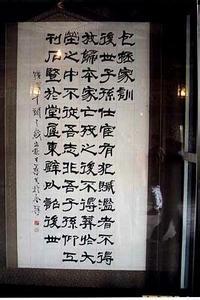 包拯家訓
後世子孫仕宦有犯贓濫者不得
放歸本家亡歿之後不得葬於大
塋之中不從吾志非吾子孫仰工
刊石豎於堂屋東壁以詔後世